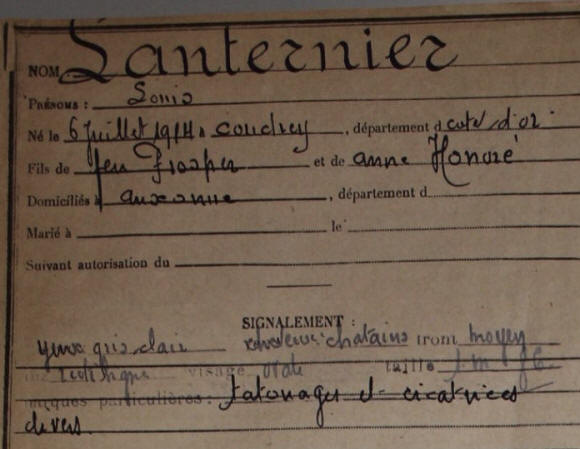 NOM Lanternier
PRÉNOMS : Louis
Né le 6 Juillet 1914 à Coudrey, département d cote d'or
Fils de feu Prosper et de anne Honoré
Domiciliés à auxonne, département d
Marié à le
Suivant autorisation du
SIGNALEMENT :
yeux gris clair cheveux chatains front moyen
nez rectiligne visage ovale taille 1 m
Marques particulières : tatouages et cicatrices
divers